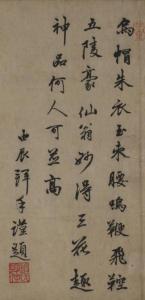 烏帽朱衣玉束腰鳴鞭飛鞚
五陵豪仙翁妙得三花趣
神品何人可並高
壬辰拜手謹題